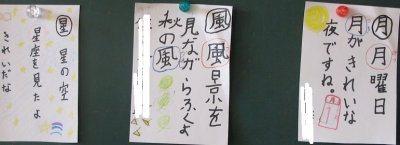 月月曜日
月がきれいな
夜ですね。
風風景を
見ながらふくよ
秋の風
星 星の空
星座を見たよ
きれいだな